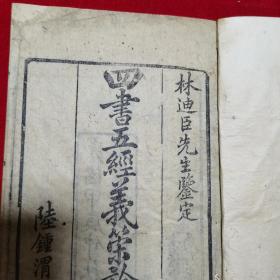 林迪臣先生鑒定
四書五經義策論
陸鍾渭